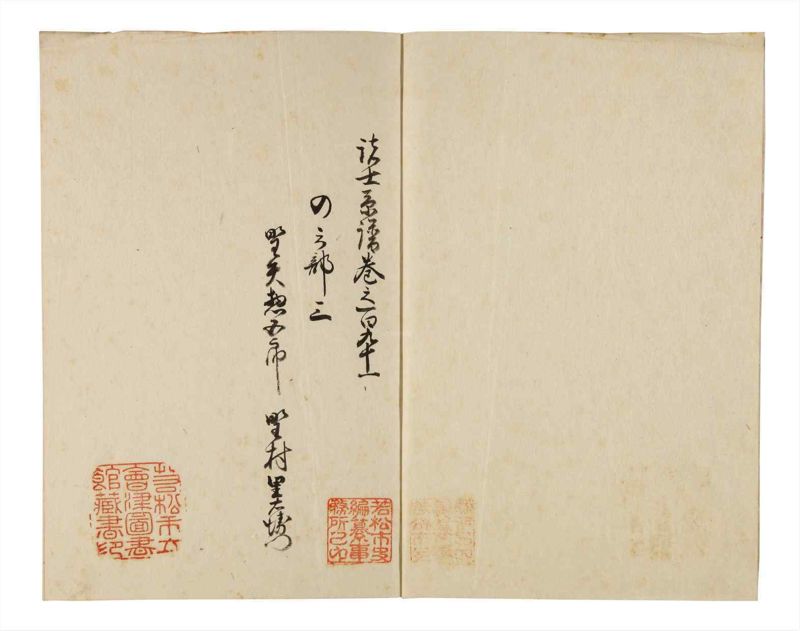 諸士系譜巻之百九十一
の之部三
野矢惣五郎 野村里右衛門
若松市史
編纂事
務所之印
若松市立
會津圖書
館藏書印